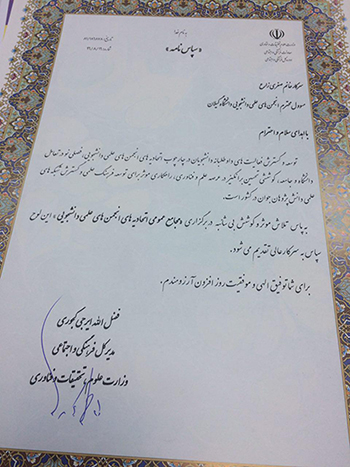 بنام خدا
«سپاس نامه»
سرکار خانم صغری زارع
مسوول محترم انجمن های علمی دانشجویی دانشگاه گیلان
با اهدای سلام و احترام
توسعه و گسترش فعالیت های داوطلبانه دانشجویان در چارچوب اتحادیه های انجمن های علمی دانشجویی، فصلی نو در تعامل
دانشگاه و جامعه، کوششی تحسین برانگیز در عرصه علم و فناوری، راهکاری موثر برای توسعه فرهنگ علمی و گسترش شبکه های
علمی دانش پژوهان جوان در کشور است.
به پاس تلاش موثر و کوشش بی شائبه در برگزاری «مجامع عمومی اتحادیه های انجمن های علمی دانشجویی» این لوح
سپاس به سرکار عالی تقدیم می شود.
برای شما توفیق الهی و موفقیت روز افزون آرزومندم.
فضل الله ایرجی کجوری
مدیر کل فرهنگی و اجتماعی
وزارت علوم، تحقیقات و فناوری